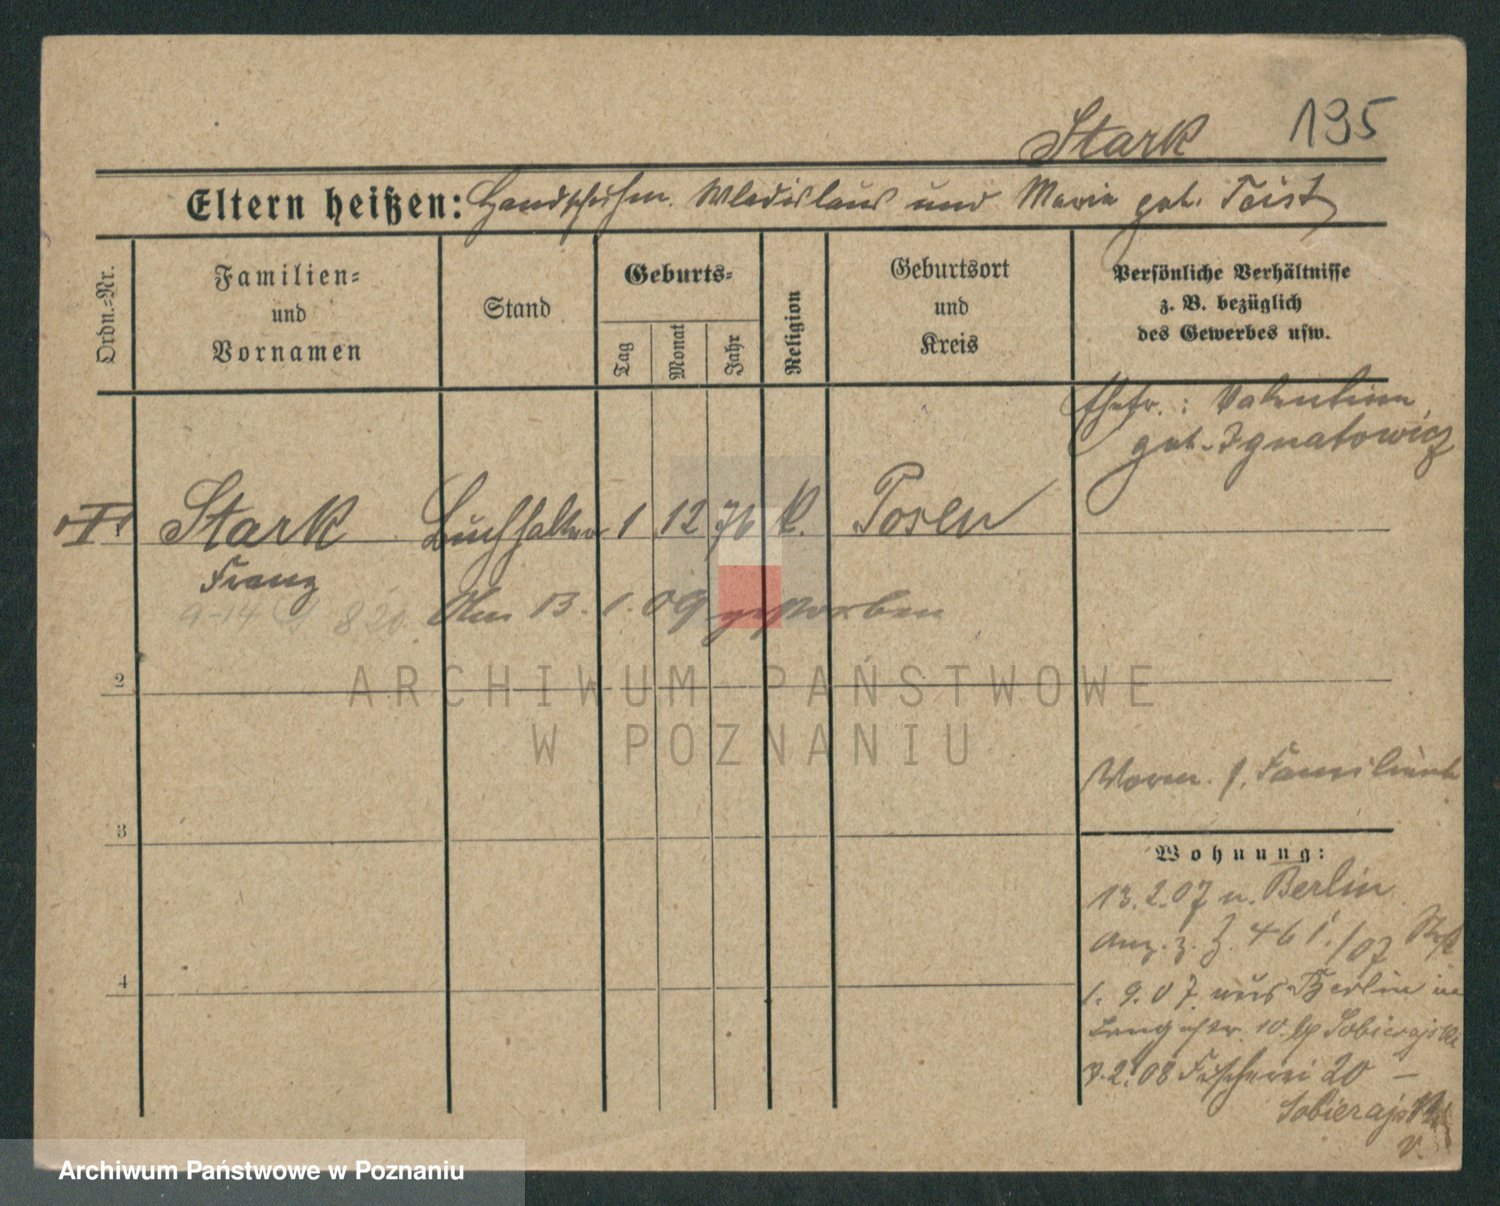 Stark 195
Eltern heißen: Wladislaus und Marie geb.
Ordn.-Nr.
Familien-
und
Vornamen
Stand
Geburts-
Tag
Monat
Jahr
Religion
Geburtsort
und
Kreis
Persönliche Verhältnisse
z. B. bezüglich
des Gewerbes usw.
Ehefr.: Valentine
geb. Ignatowicz
1 Stark Buchhalter 1 12 76 k. Posen
Franz
9-14 820
Am 13. 1. 09 gestorben
2
3
4
Wohnung:
13.2.07 n. Berlin
Anz. z. J. 461./07
1. 9. 07. aus Berlin in
10. Sobierajski
08 Fischerei 20 –
Sobierajski
v.
ARCHIWUM PAŃSTWOWE
W POZNANIU
Archiwum Państwowe w Poznaniu